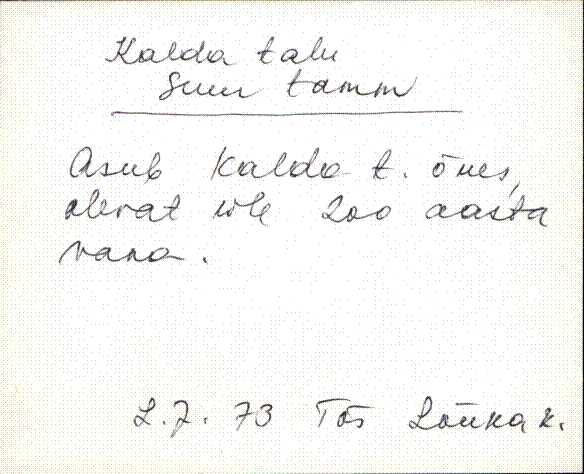 Kalda talu
Suur tamm
Asub Kalda t. õues,
olevat üle 200 aasta
vana.
L.J. 73 Tõs Lõuka k.